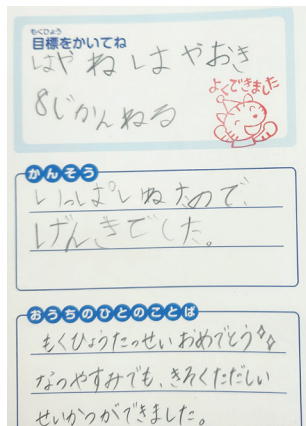 もくひょう
目標をかいてね
はやねはやおき
よくできました
8じかんねる
かんそう
いっぱいねたので、
げんきでした。
おうちのひとのことば
もくひょうたっせいおめでとう
なつやすみでも、きそくただしい
せいかつができました。